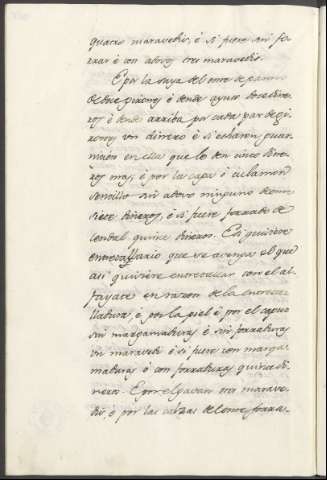 quatro maravedis, é si fuere sin fo
rrar é con adovo tres maravedis.
E por la saya del ome de pannos
de doce girones é dende ayuso doce dine
ros é dende arriba por cada par de gi
rones un dinero é si echaren guar
nicion en ella que lo den cinco dine
ros mas, é por la capa é velamen
sencillo sin adovo ninguno den
siete dineros, é si fuere forrado de
cendal, quince dineros. E si quisiere
entresillario que se avenga el que
asi quisiere entretallar con el al
fayate en razon de la entreta
lladura, é por la piel é por el agua
sin margamaduras é sin forraduras
un maravedi é si fuere con marga
maduras é con forraduras quince di
neros. E por el gavan tres marave
dis, é por las calzas del ome forra